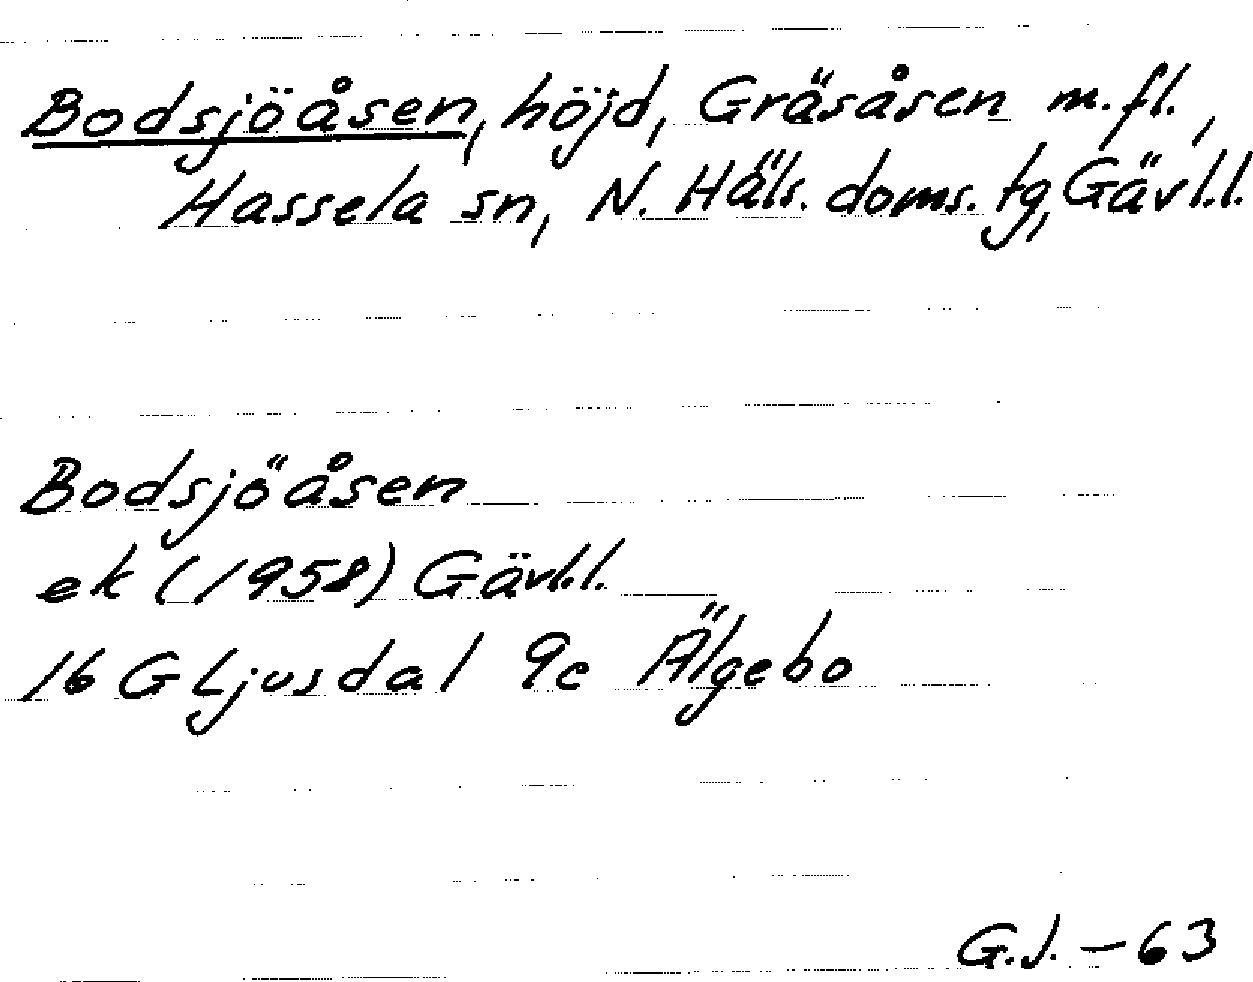 Bodsjöåsen, höjd, Gräsåsen m.fl.,
Hassela sn, N. Häls. doms. tg, Gävl.l.
Bodsjöåsen
ek (1958) Gävl.l.
16 G Ljusdal 9c Älgebo
G.J. – 63